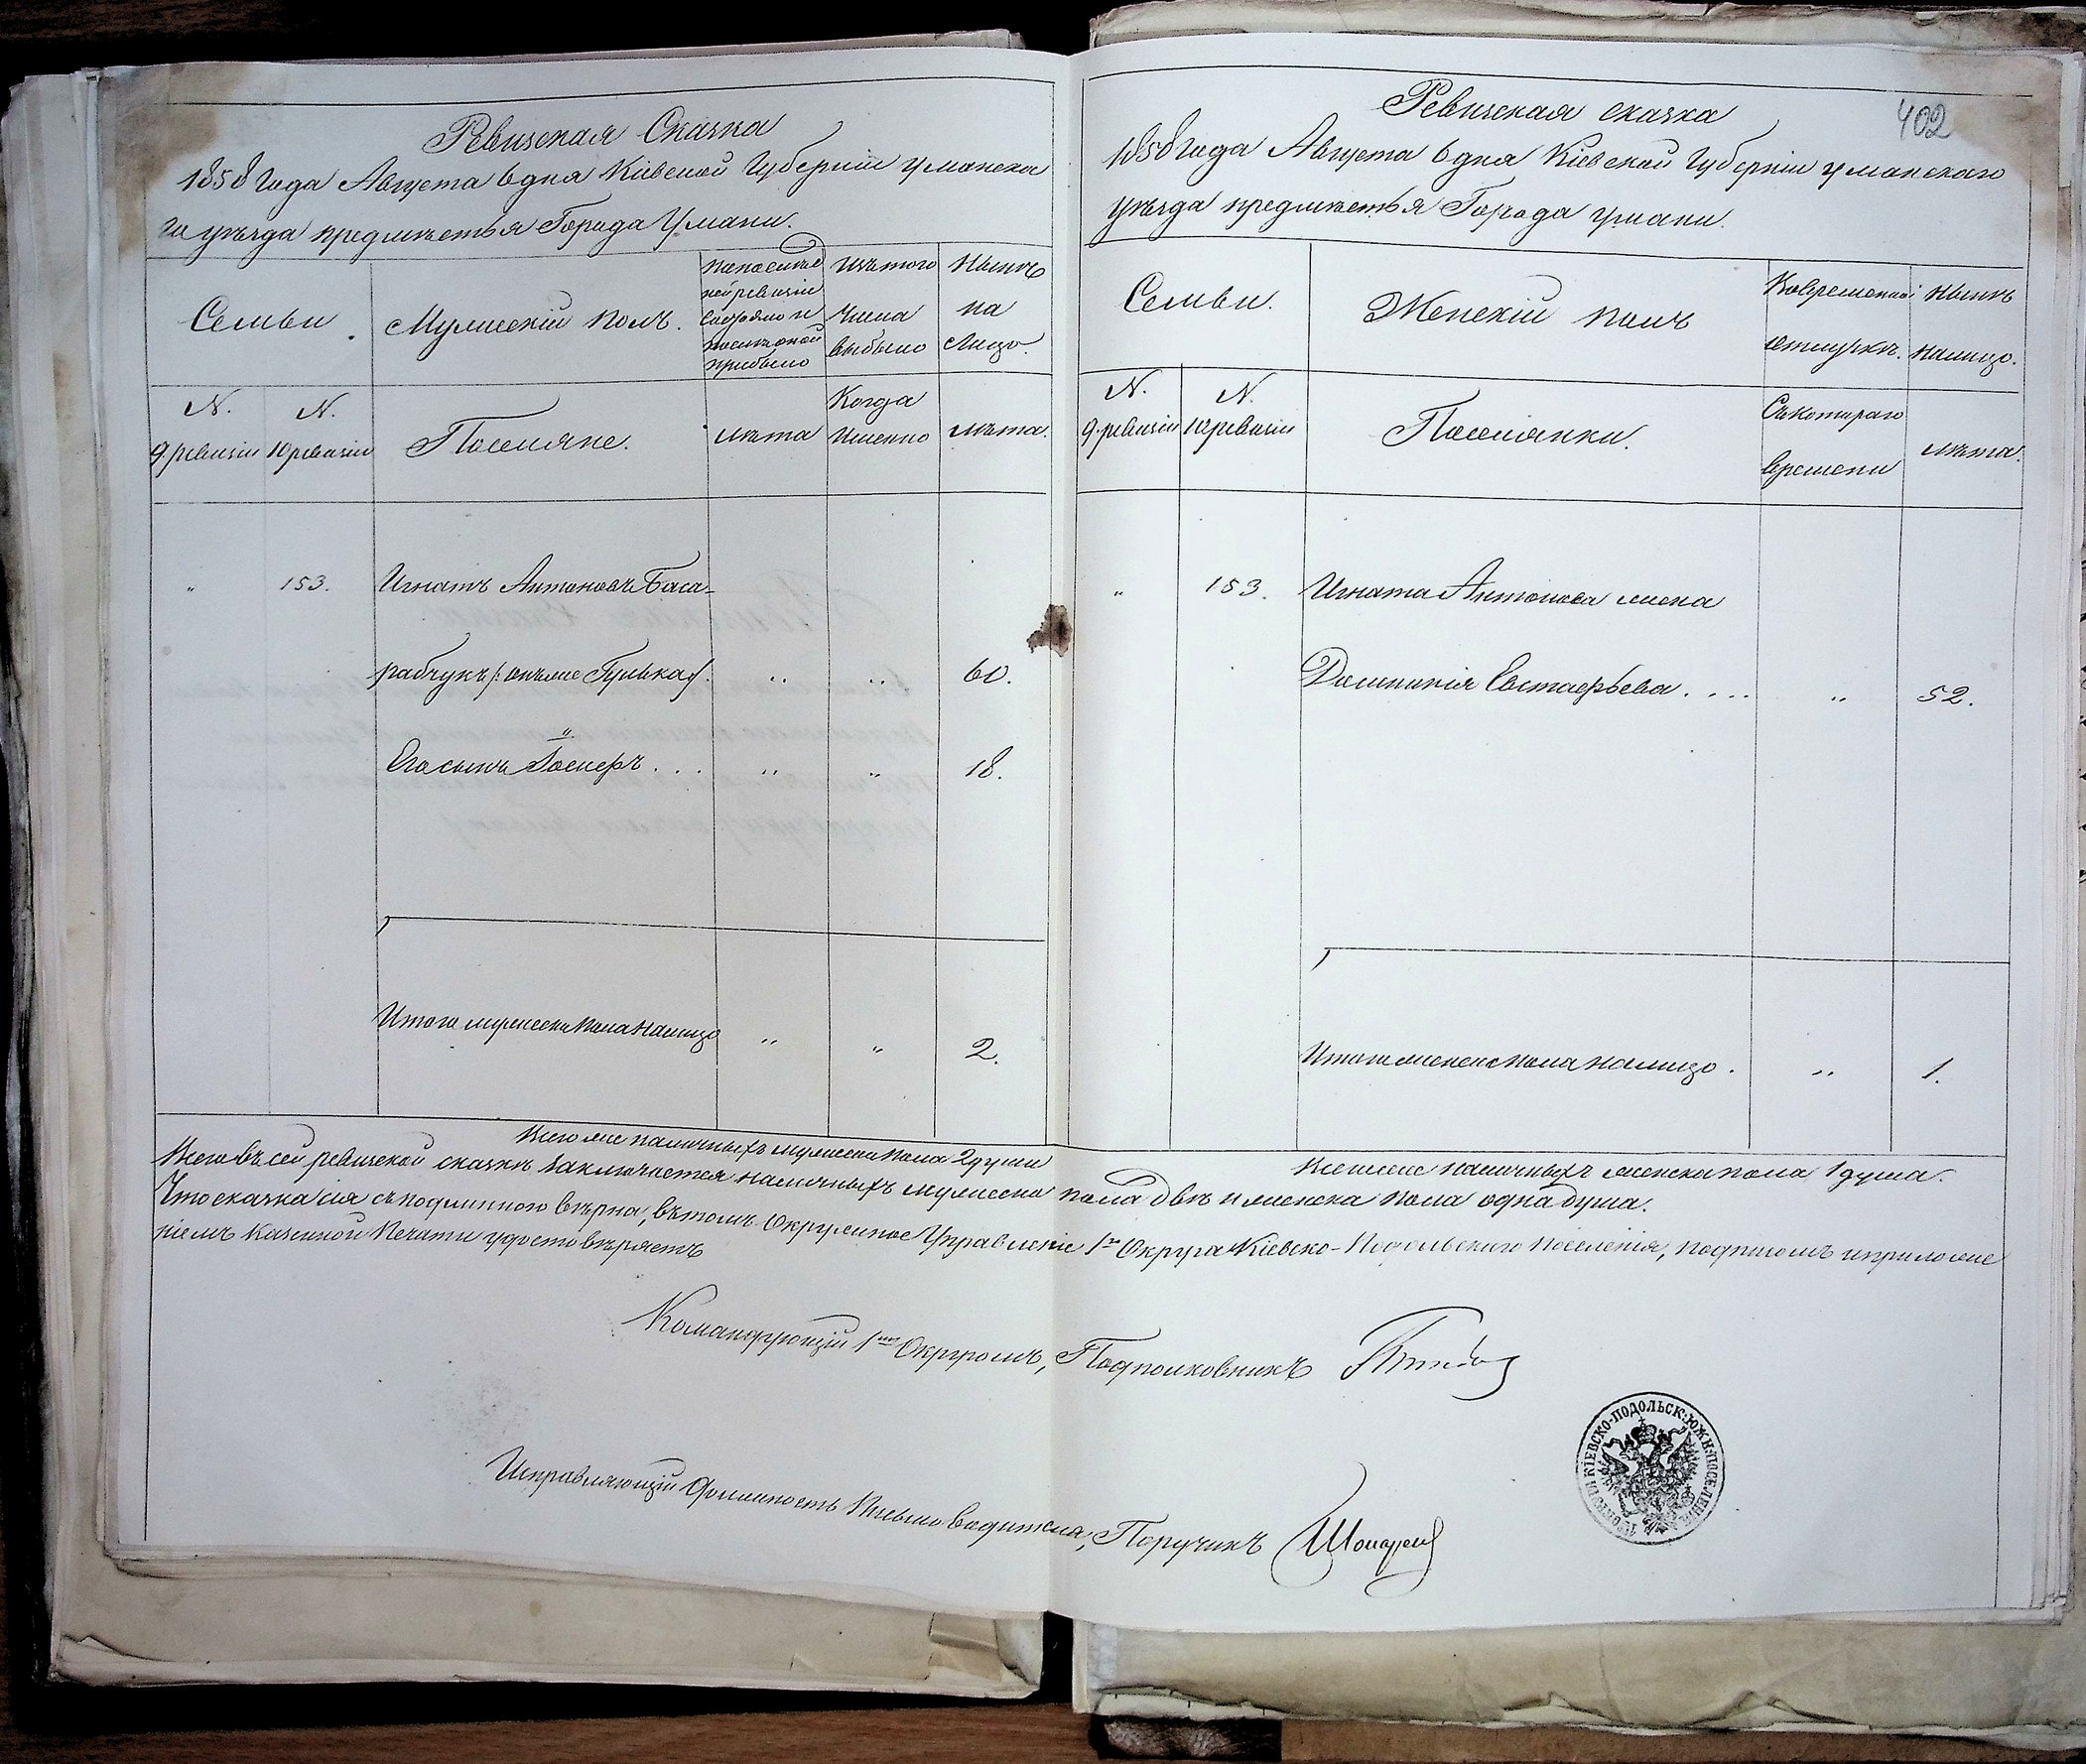 Ревизская Сказка
1858 Года Августа 6 дня Кіевской Губерніи Уманска
го уѣзда предмѣстья Города Умани.
Семьи.
Мужескій полъ.
По послѣд
ней ревизіи
состояло и
послѣ оной
прибыло
Изъ того
числа
выбыло
Нынѣ
на
лицо.
N.
9 ревизіи
N.
10 ревизіи
Поселяне.
лѣта
Когда
Именно
лѣта.
" 153. Игнатъ Антоновъ Баса-
рабчукъ /: онъ же Гулька :/ . " " 60.
Его сынъ Іосифъ . . . " " 18.
Итого мужеска пола налицо " " 2.
Всего же наличныхъ мужеска пола 2 души
402
Ревизская сказка
1858 года Августа 6 дня Кіевской Губерніи Уманскаго
уѣзда предмѣстья Города Умани.
Семьи.
Женскій полъ
Во временной
отлучкѣ.
Нынѣ
налицо.
N.
9 ревизіи
N.
10 ревизіи
Поселянки.
Съ котораго
времени
лѣта.
" 153. Игната Антонова жена
Домникія Евстафьева . . . . " 52.
Итого женска пола налицо . " 1.
Всего же наличныхъ женска пола 1 душа.
Всего въ сей ревизской сказкѣ заключается наличныхъ мужеска пола двѣ и женска пола одна душа.
Что сказка сія съ подлинною вѣрна, въ томъ Окружное Управленіе 1го Округа Кіевско-Подольскаго Поселенія, подписомъ и приложе
ніемъ Казенной Печати удостовѣряетъ
Командующій 1мъ Округомъ, Подполковникъ
Исправляющій Должность Письмоводителя, Поручикъ
КІЕВСКО-ПОДОЛЬСК: ЮЖН: ПОСЕЛЕН: